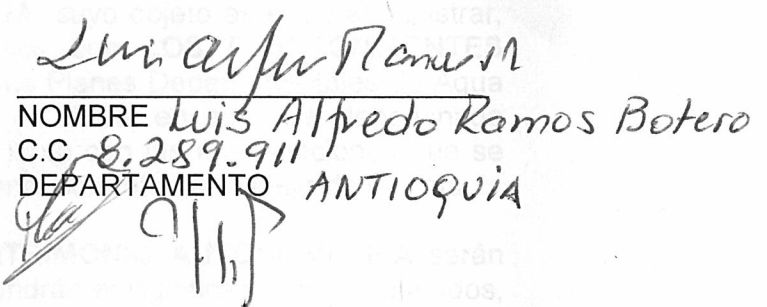 Luis Alfredo Ramos B
NOMBRE Luis Alfredo Ramos Botero
C.C 8.289.911
DEPARTAMENTO ANTIOQUIA